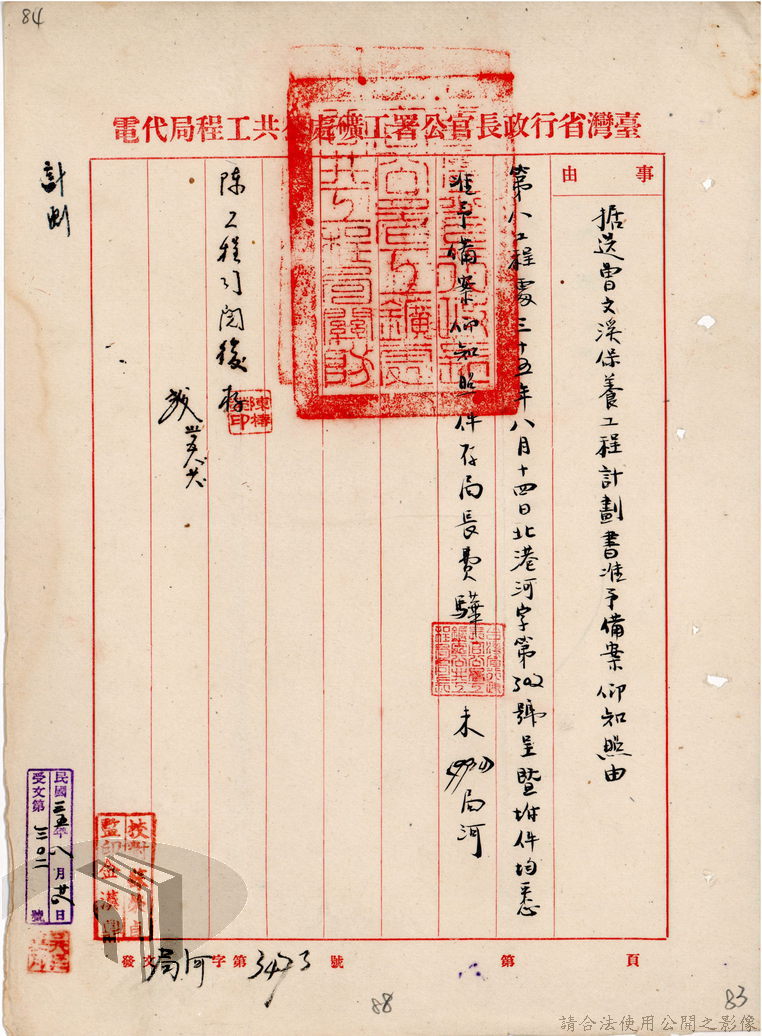 84
臺灣省行政長官公署工礦處公共工程局代電
事由
据送曾文溪保養工程計劃書准予備案仰知照由
第八工程處三十五年八月十四日北港河字第302號呈暨坿件均悉
准予備案仰知照件存局長費驊
未
局河
陳工程司閱後存
計劃
民國三五年八月廿日
受文第三〇二號
校對
監印金
發文局河字第3473號
第頁
88
83
請合法使用公開之影像